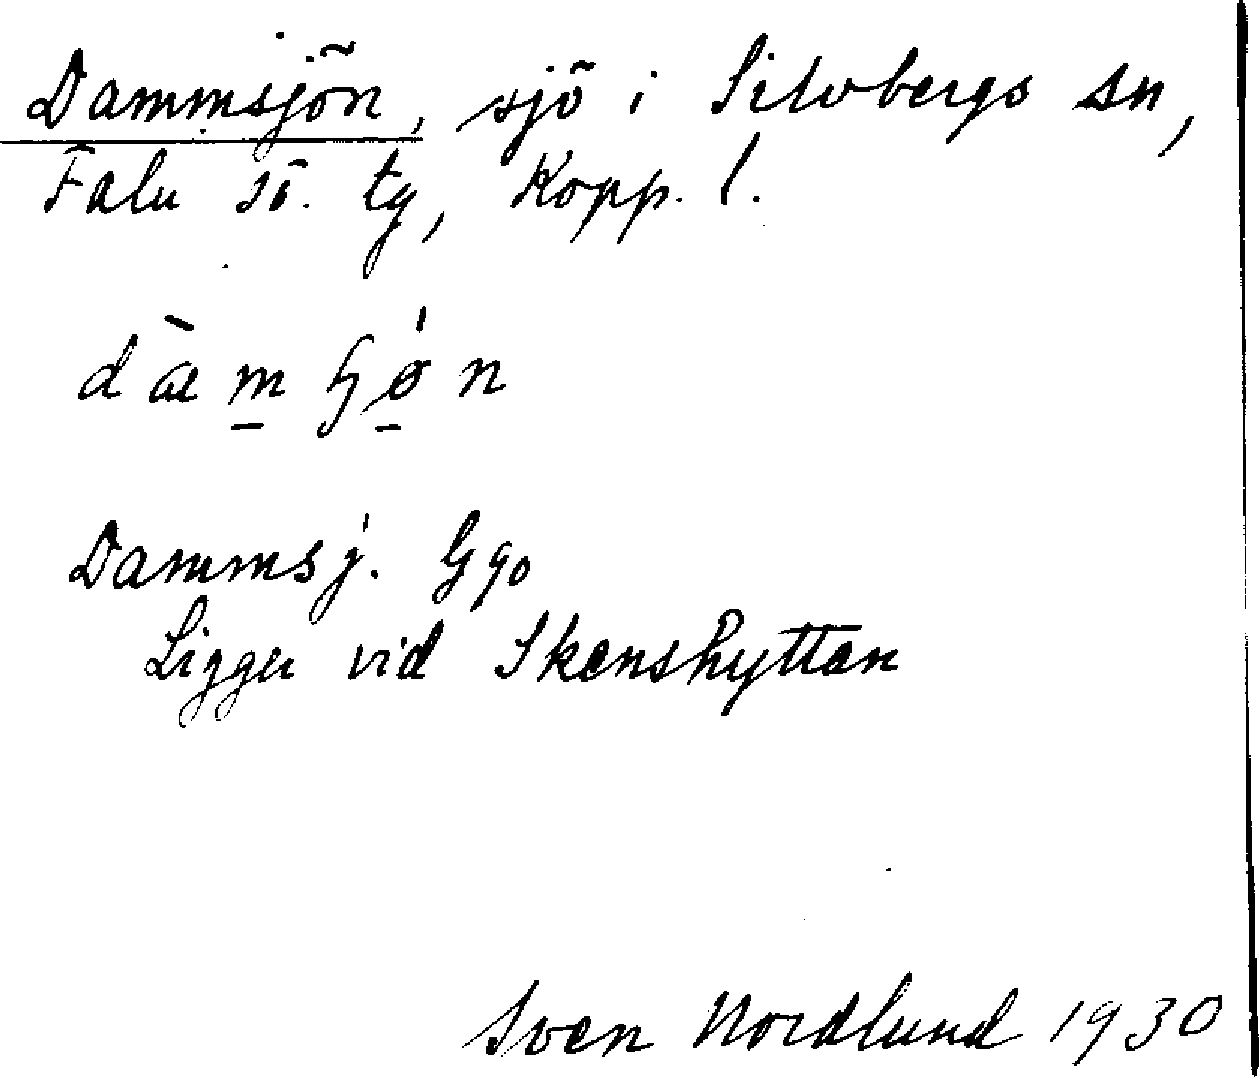 Dammsjön, sjö i Silvbergs sn,
Falu sö. tg, Kopp. l.
Dammsj. G 90
Ligger vid Skenshyttan
Sven Nordlund 1930